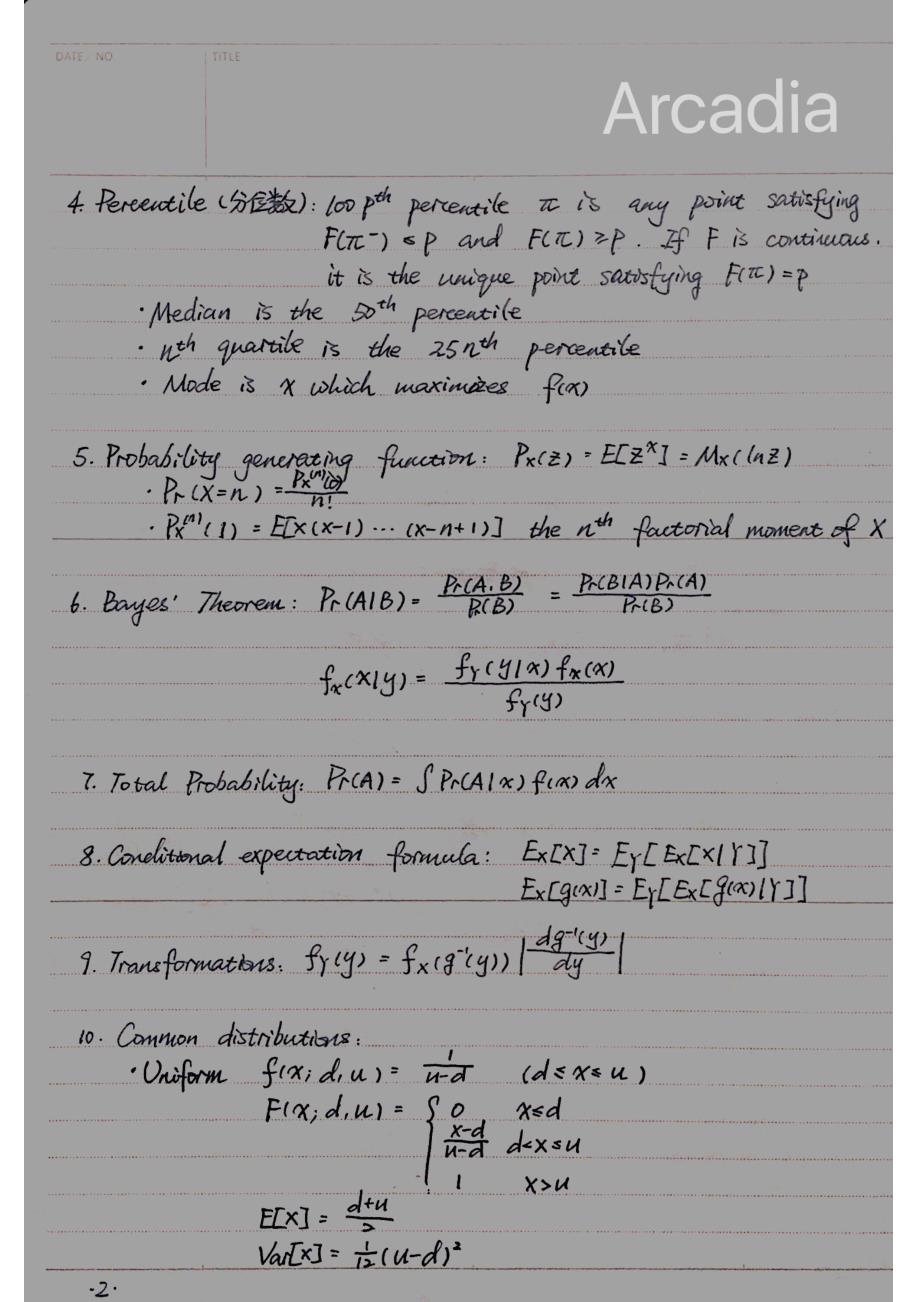 DATE / NO.
TITLE
Arcadia
4. Percentile (分位数): 100 pth percentile π is any point satisfying
F(π⁻) ≤ p and F(π) ≥ p. If F is continuous.
it is the unique point satisfying F(π) = p
· Median is the 50th percentile
· nth quartile is the 25nth percentile
· Mode is x which maximizes f(x)
5. Probability generating function: Px(z) = E[z^x] = Mx(lnz)
· Pr(X=n) = Px^(n)(0) / n!
· Px^(n)(1) = E[x(x-1) ··· (x-n+1)] the nth factorial moment of X
6. Bayes' Theorem: Pr(A|B) = Pr(A.B) / Pr(B) = Pr(B|A)Pr(A) / Pr(B)
fx(x|y) = fY(y|x) fx(x) / fY(y)
7. Total Probability: Pr(A) = ∫ Pr(A|x) f(x) dx
8. Conditional expectation formula: Ex[X] = EY[Ex[X|Y]]
Ex[g(x)] = EY[Ex[g(x)|Y]]
9. Transformations: fY(y) = fx(g⁻¹(y)) | dg⁻¹(y) / dy |
10. Common distributions:
· Uniform f(x; d, u) = 1 / u-d (d ≤ x ≤ u)
F(x; d, u) = { 0 x≤d
x-d / u-d d<x≤u
1 x>u
E[x] = d+u / 2
Var[x] = 1/12 (u-d)²
·2·